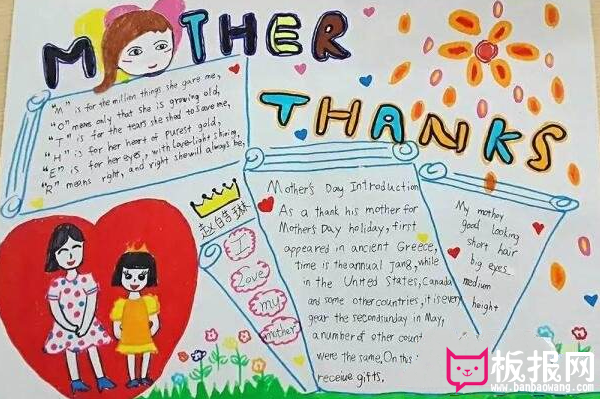 MOTHER
THANKS
"M" is for the million things she gave me,
"O" means only that she is growing old,
"T" is for the tears she shed to save me,
"H" is for her heart of purest gold,
"E" is for her eyes, with love-light shining,
"R" means right, and right she will always be,
I
love
my
mother
Mother's Day Introduction
As a thank his mother for
Mother's Day holiday, first
appeared in ancient Greece,
time is the annual Jan8, while
in the United States, Canada
and some other countries, it is every
year the second sunday in May,
a number of other count
were the same. On this:
receive gifts.
My mother
good looking
short hair
big eyes
medium
height
板报网
www.banbaowang.com